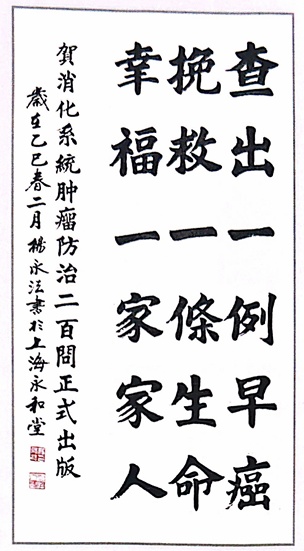 查出一例早癌
挽救一條生命
幸福一家家人
賀消化系統肿瘤防治二百問正式出版
歲在乙巳春二月楊永法書於上海永和堂